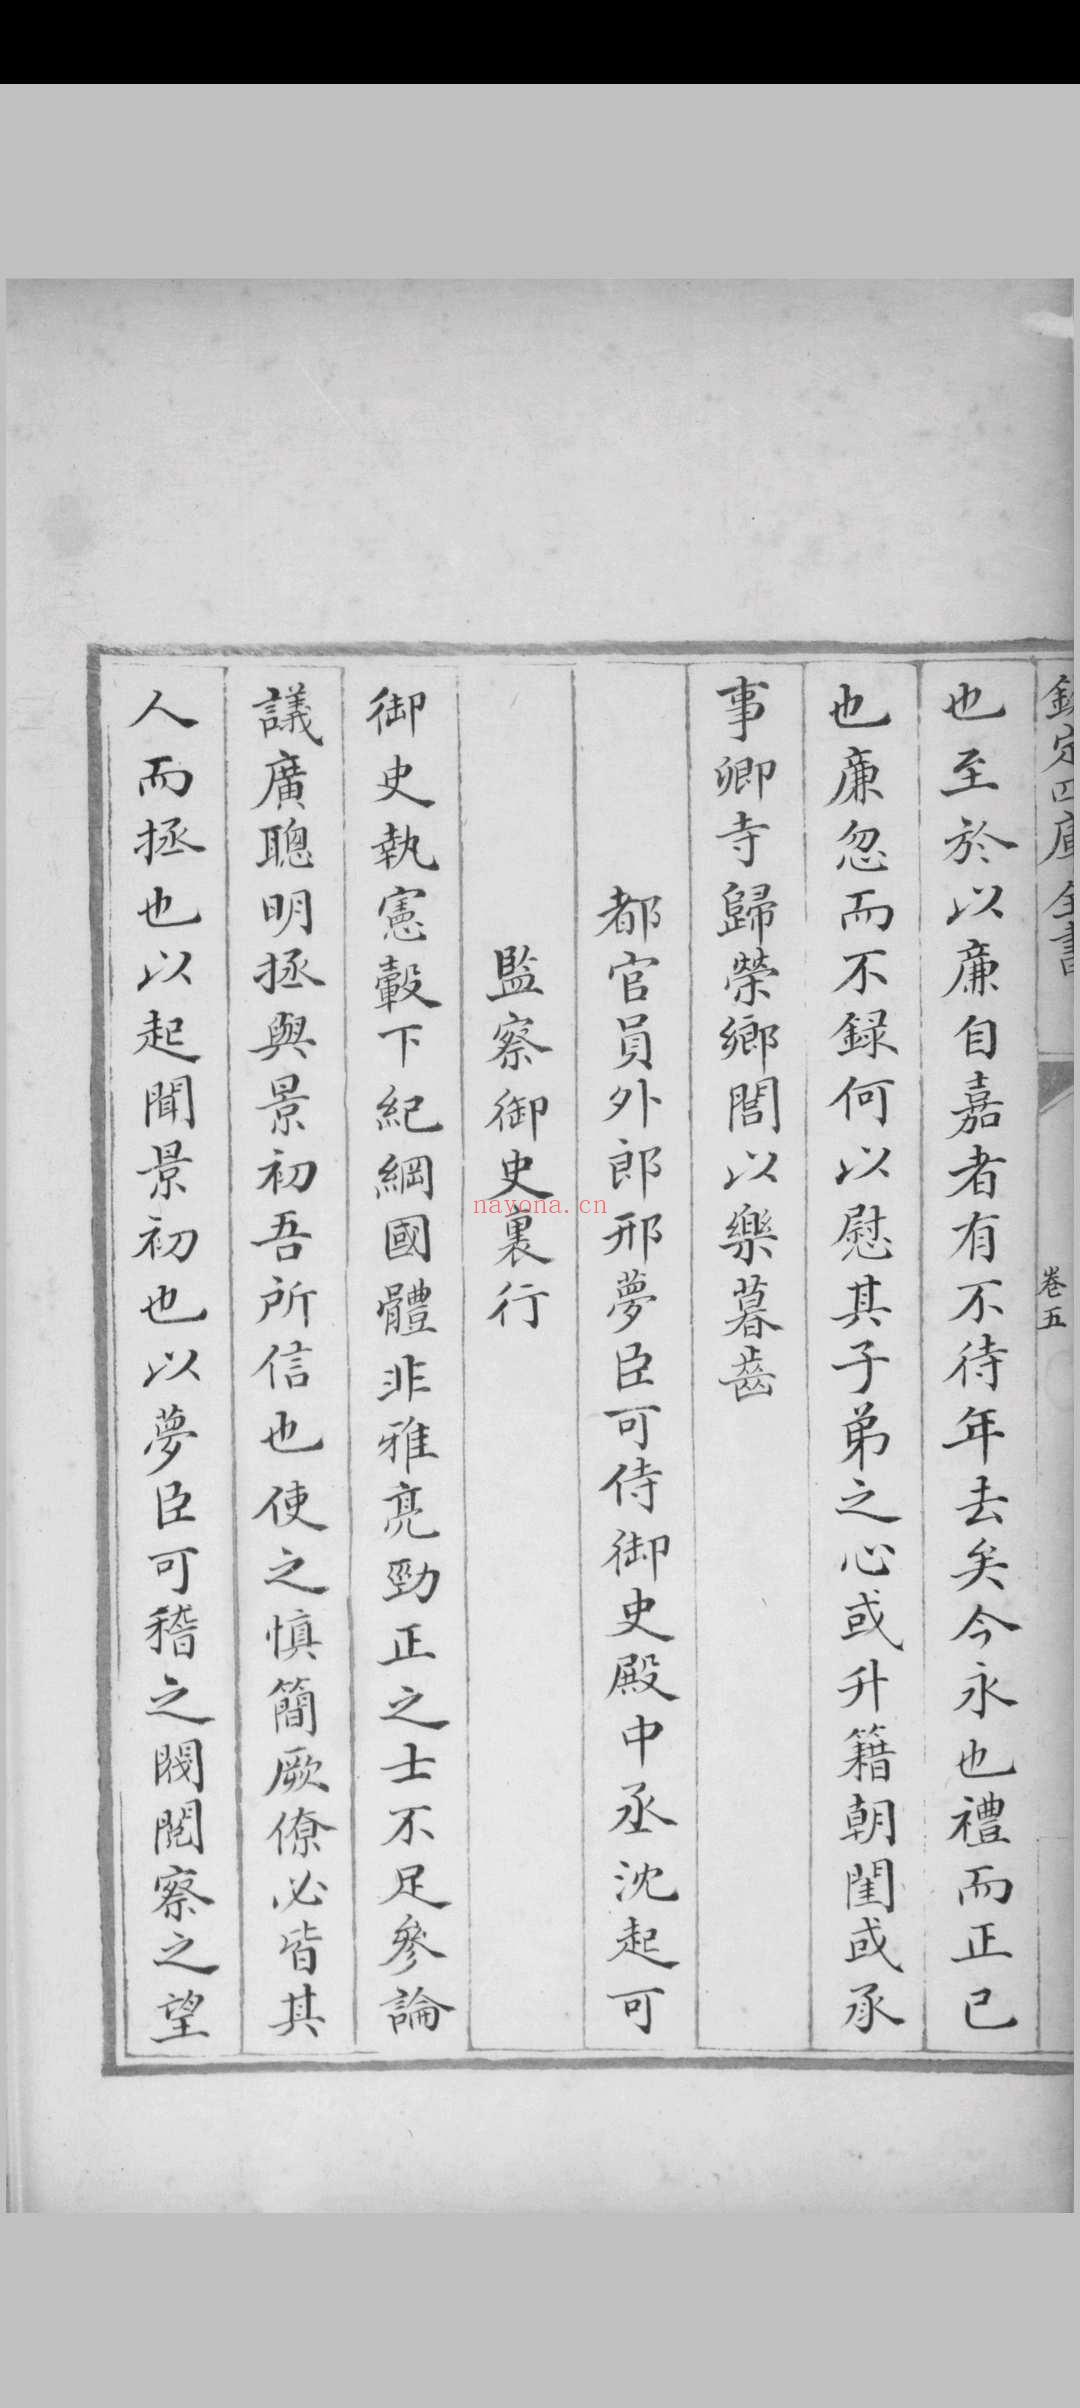 欽定四庫全書
卷五
也至於以亷自嘉者有不待年去矣今永也禮而正已
也亷忽而不録何以慰其子弟之心或升籍朝閨或承
事卿寺歸榮鄉閭以樂暮齒
都官員外郎邢夢臣可侍御史殿中丞沈起可
監察御史裏行
御史執憲轂下紀綱國體非雅亮勁正之士不足參論
議廣聰明拯與景初吾所信也使之慎簡厥僚必皆其
人而拯也以起聞景初也以夢臣可稽之閥閲察之望
nayona.cn